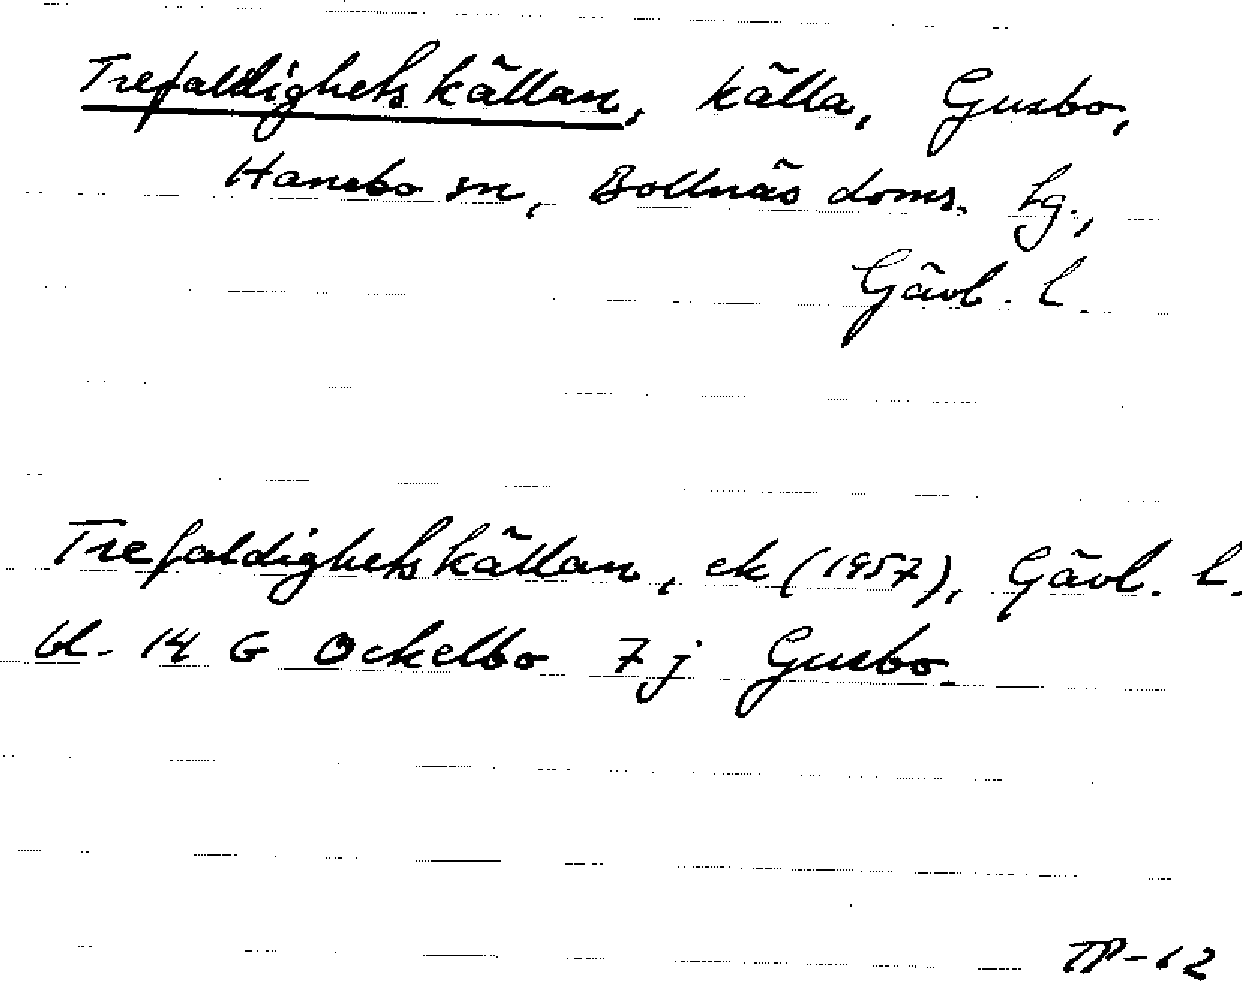 Trefaldighetskällan, källa, Gusbo,
Hanebo sn, Bollnäs doms. hg.,
Gävl. l.
Trefaldighetskällan, ek (1957), Gävl. l.
bl. 14 G Ockelbo 7 j Gusbo.
TP-12